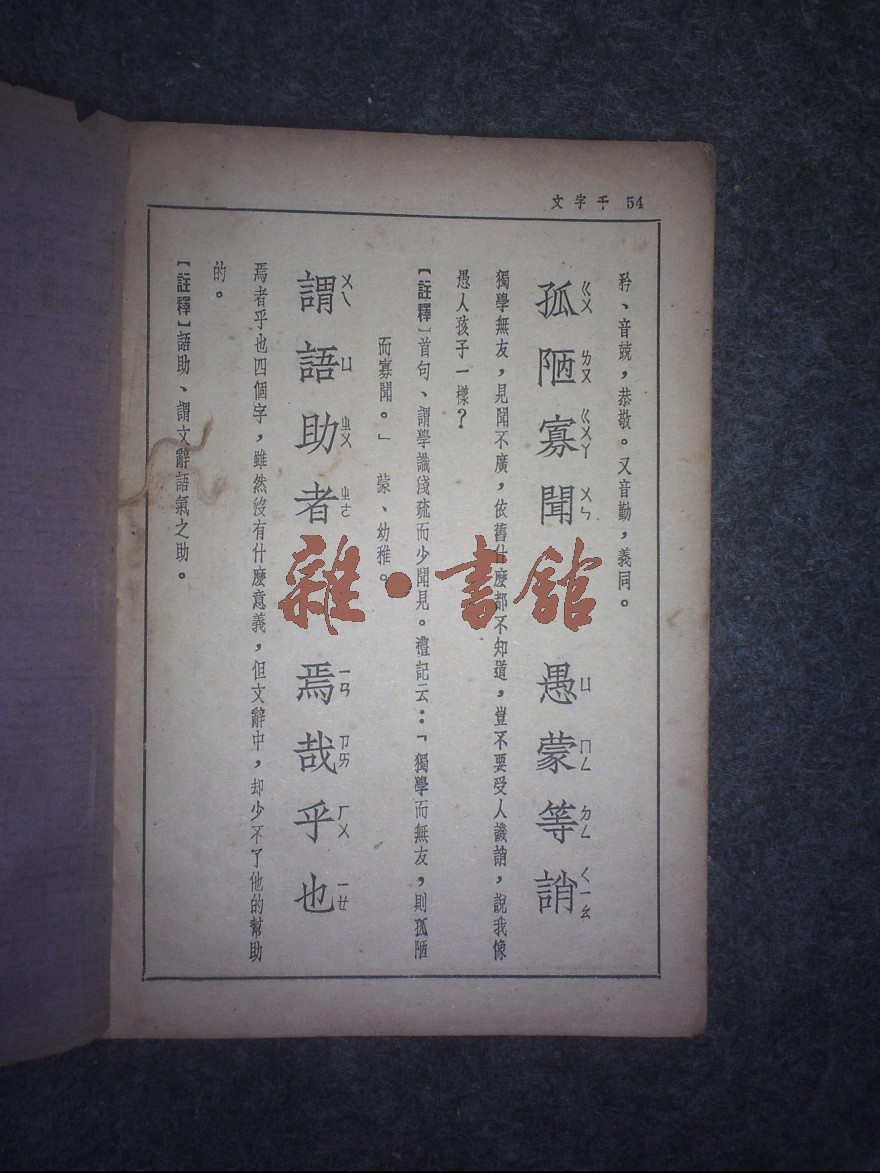 文字千 54
矜、音兢，恭敬。又音勤，義同。
孤陋寡聞 愚蒙等誚
ㄍㄨ ㄌㄡ ㄍㄨㄚ ㄨㄣ ㄩ ㄇㄥ ㄉㄥ ㄑㄧㄠ
獨學無友，見聞不廣，依舊什麼都不知道，豈不要受人譏誚，說我像
愚人孩子一樣？
【註釋】首句、謂學識淺疏而少聞見。禮記云：「獨學而無友，則孤陋
而寡聞。」 蒙、幼稚。
謂語助者 焉哉乎也
ㄨㄟ ㄩ ㄓㄨ ㄓㄜ ㄧㄢ ㄗㄞ ㄏㄨ ㄧㄝ
焉者乎也四個字，雖然沒有什麼意義，但文辭中，却少不了他的幫助
的。
【註釋】語助、謂文辭語氣之助。
雜·書館